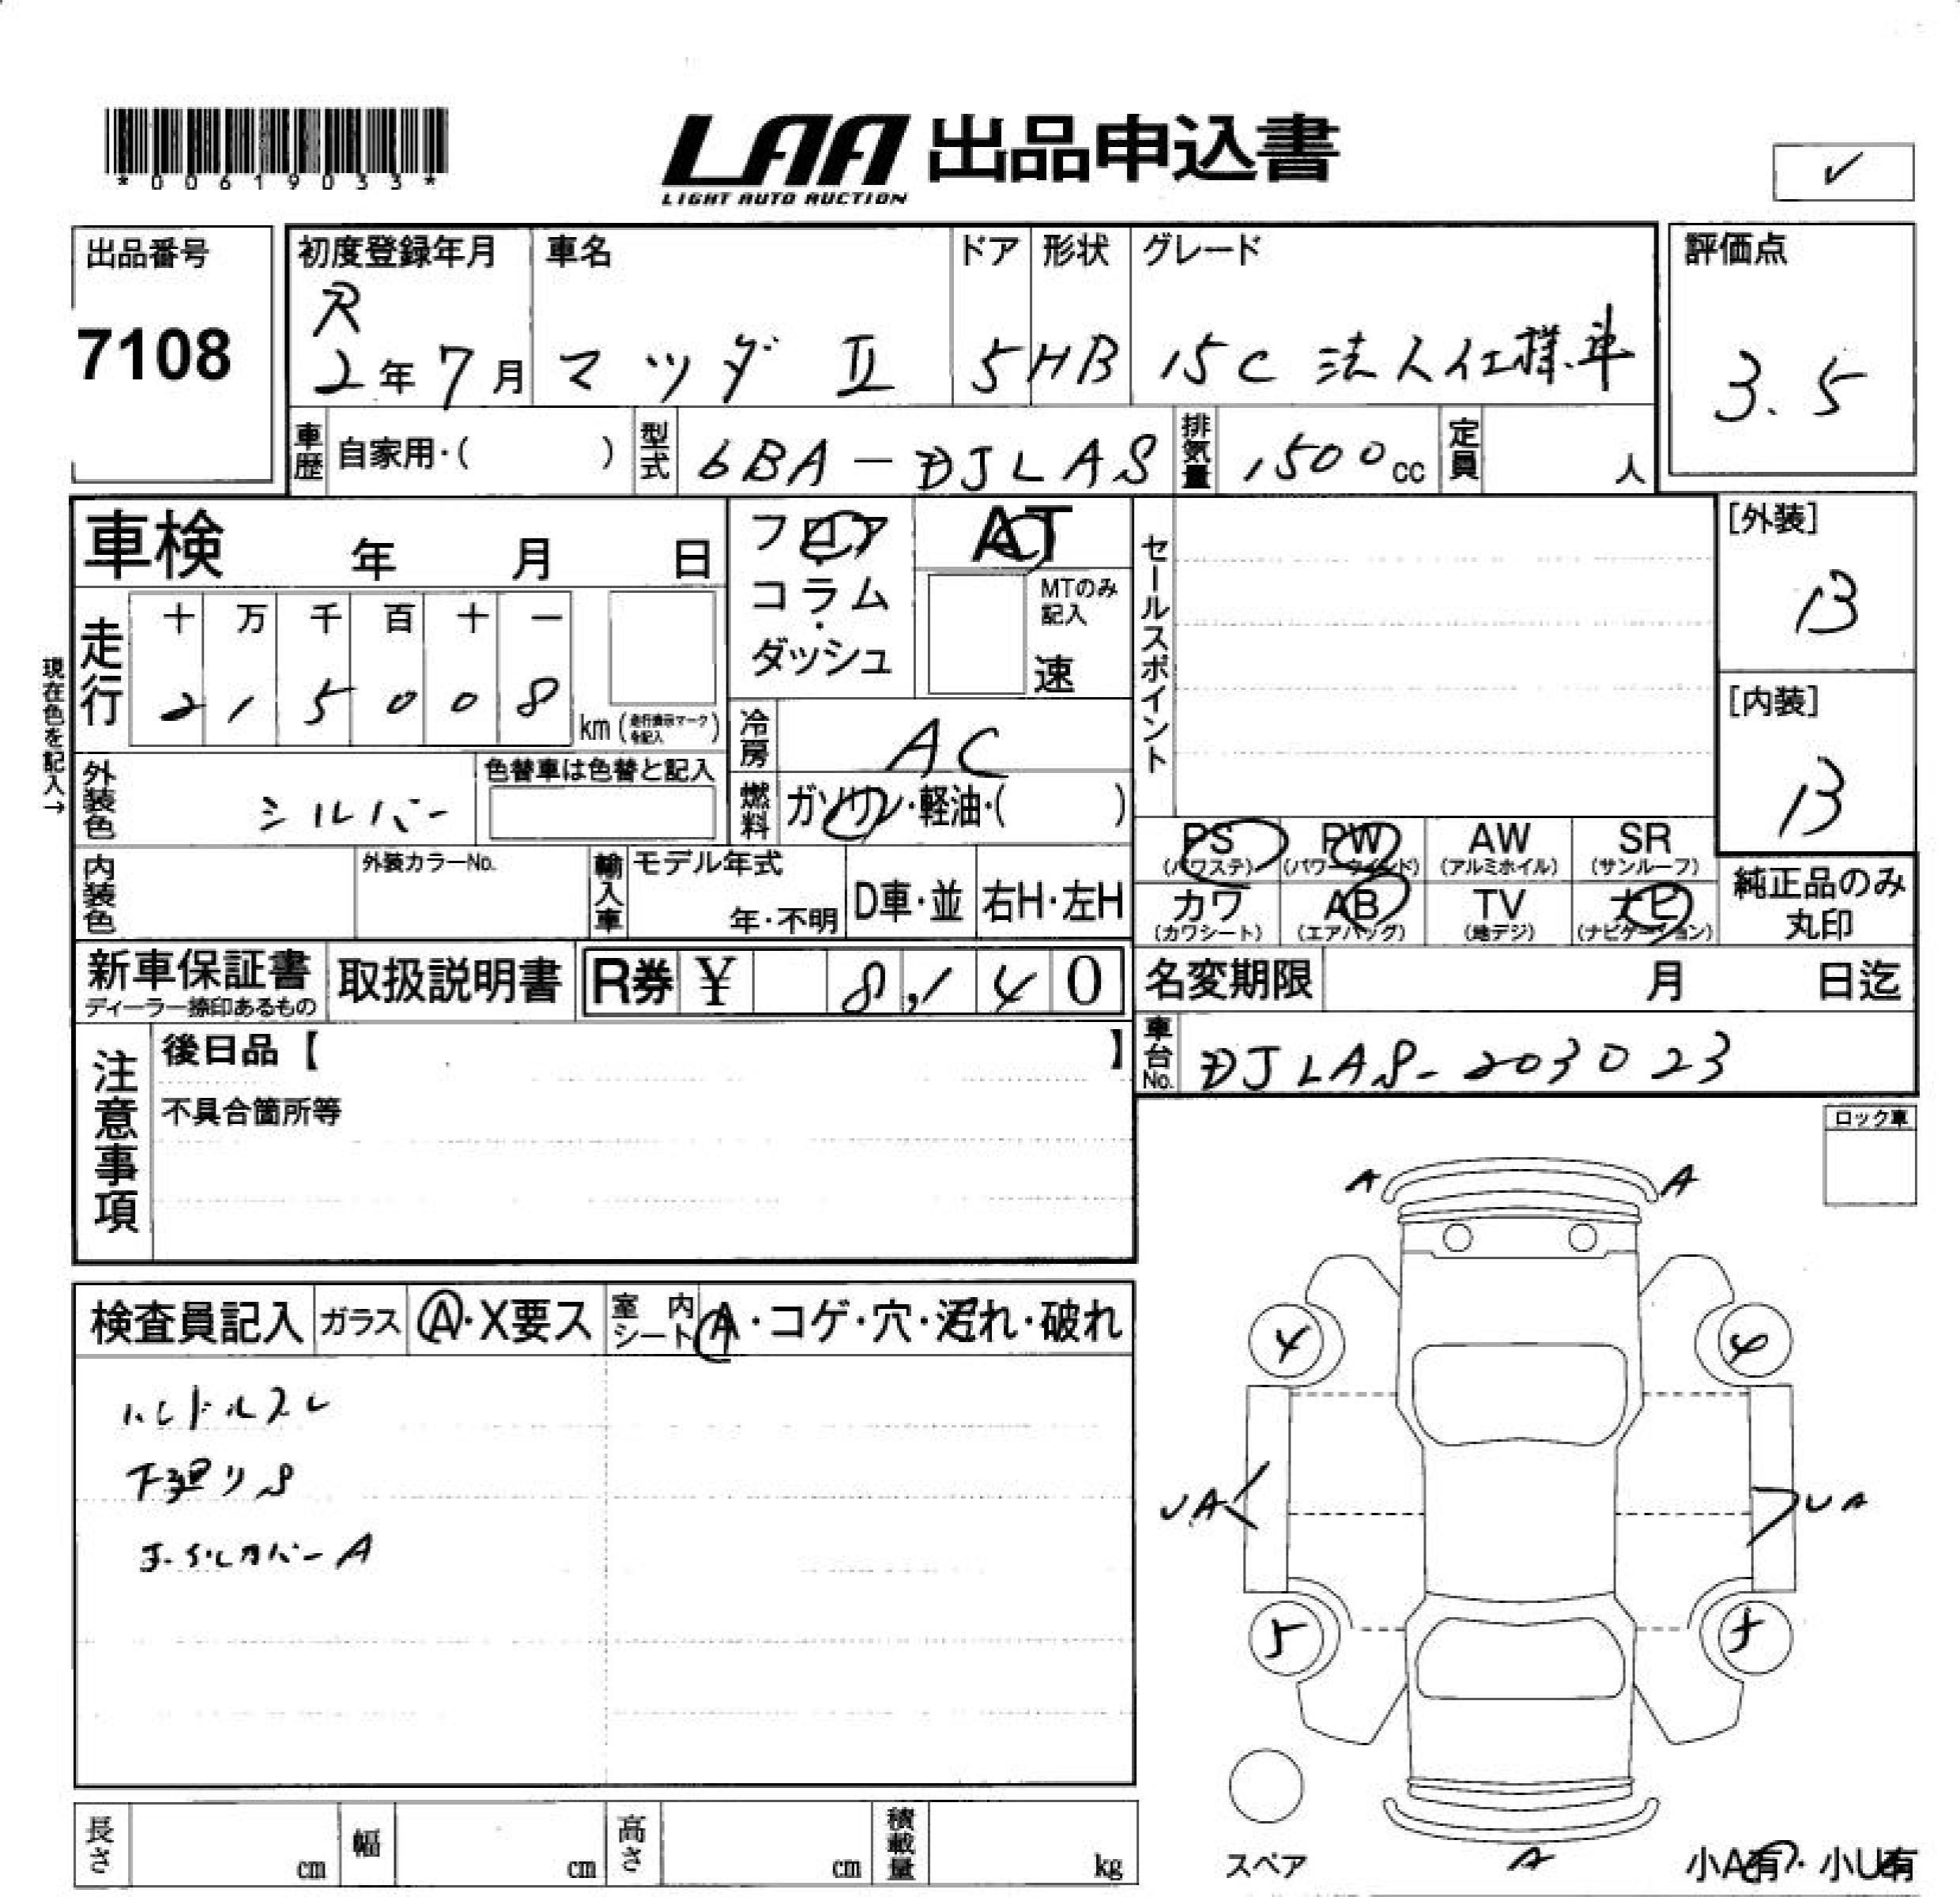 *00619033*
LAA 出品申込書
LIGHT AUTO AUCTION
✓
出品番号
7108
初度登録年月
R
2年7月
車名
マツダ Ⅱ
ドア
5
形状
HB
グレード
15C 法人仕様車
評価点
3.5
車歴 自家用・( )
型式 6BA-DJLAS
排気量 1500cc
定員 人
車検 年 月 日
フロア・コラム・ダッシュ
AT
MTのみ記入
速
セールスポイント
[外装]
B
[内装]
B
現在色を記入→
走行
十 万 千 百 十 一
2 1 5 0 0 8
km(走行表示マークを記入)
冷房 AC
外装色 シルバー
色替車は色替と記入
燃料 ガソリン・軽油・( )
PS (パワステ)
PW (パワーウインド)
AW (アルミホイル)
SR (サンルーフ)
カワ (カワシート)
AB (エアバッグ)
TV (地デジ)
ナビ (ナビゲーション)
純正品のみ丸印
内装色
外装カラーNo.
輸入車
モデル年式
年・不明
D車・並
右H・左H
新車保証書
ディーラー捺印あるもの
取扱説明書
R券 ¥ 8,140
名変期限 月 日迄
車台No. DJLAS-203023
注意事項
後日品【 】
不具合箇所等
ロック車
A A
検査員記入
ガラス A・X要ス
室内シート A・コゲ・穴・汚れ・破れ
ハンドルスレ
下廻りS
ホイルカバーA
4 4
UA UA
5 5
スペア
A
小A有・小U有
長さ cm
幅 cm
高さ cm
積載量 kg